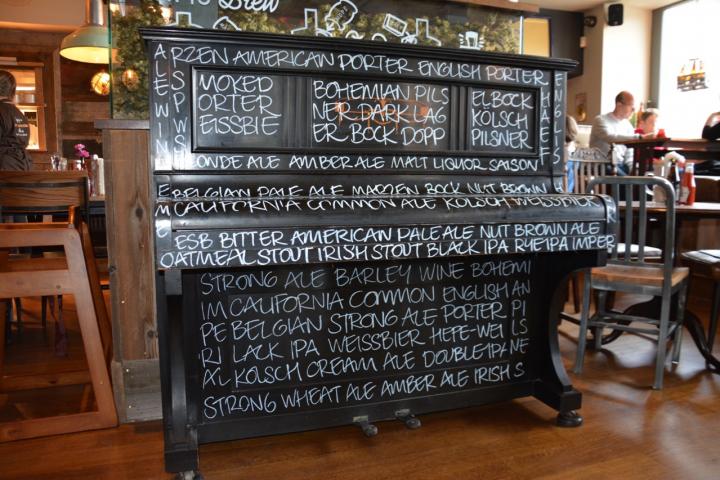 Brew
RZEN AMERICAN PORTER ENGLISH PORTER
ALEWIN
SSPWS
MOKED
ORTER
EISSBIE
BOHEMIAN PILS
NER DARK LAG
ER BOCK DOPP
ELBOCK
KOLSCH
PILSNER
HAEF
NGLIS
ONDE ALE AMBER ALE MALT LIQUOR SAISON
E BELGIAN PALE ALE MARZEN BOCK NUT BROWN
M CALIFORNIA COMMON ALE KOLSCH WEISSBIER
ESB BITTER AMERICAN PALE ALE NUT BROWN ALE
OATMEAL STOUT IRISH STOUT BLACK IPA RYE IPA IMPER
STRONG ALE BARLEY WINE BOHEMI
IM CALIFORNIA COMMON ENGLISH AN
PE BELGIAN STRONG ALE PORTER PI
RI LACK IPA WEISSBIER HEFE-WEI LS
AL KOLSCH CREAM ALE DOUBLE IPA NE
STRONG WHEAT ALE AMBER ALE IRISH S